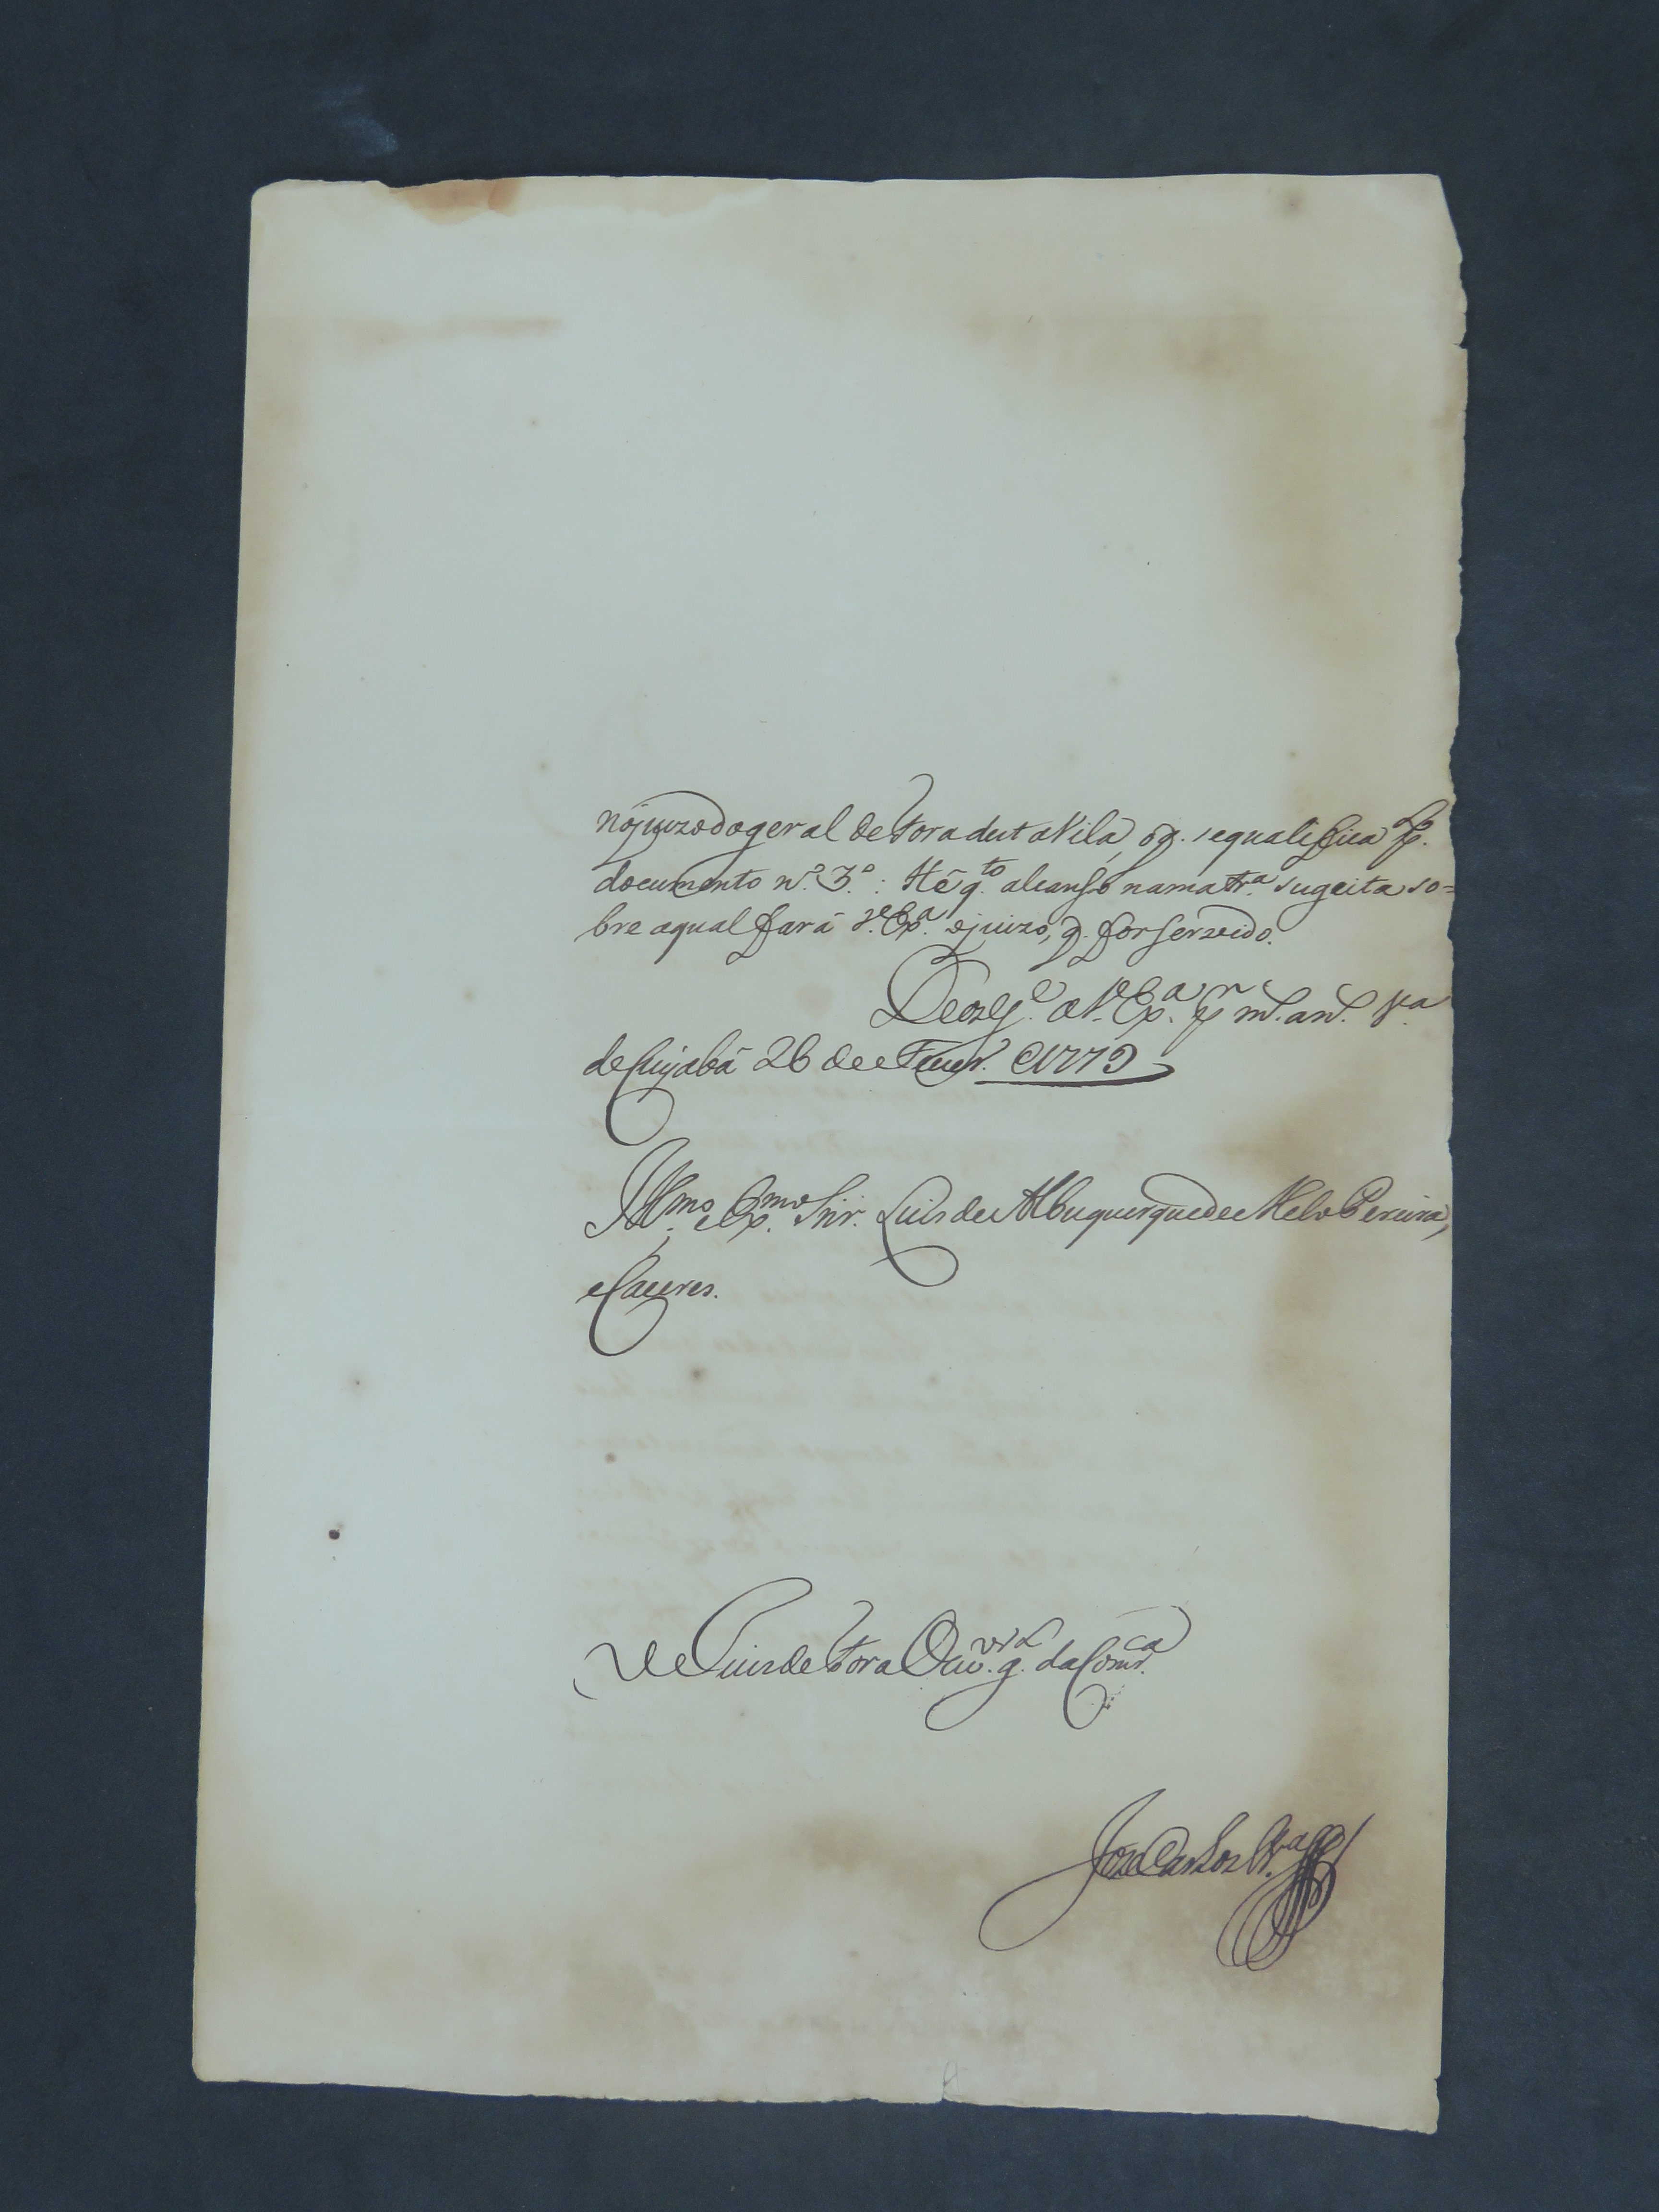 no juizo do geral de Fora desta Vila, o q. se qualifica p.
documento n.º 3.º: He q.to alcanso na matr.a sugeita so=
bre a qual fará V. Ex.a o juizo, q. for servido.
Deos g.e a V. Ex.a p.r m.s an.s V.a
de Cuyabá 26 de Fever.º 1779
Ill.mo e Ex.mo Snr. Luis de Albuquerque de Melo Pereira,
e Caceres.
De Juis de Fora Ouv.or g.al da Com.ca
Joze Carlos Pr.a